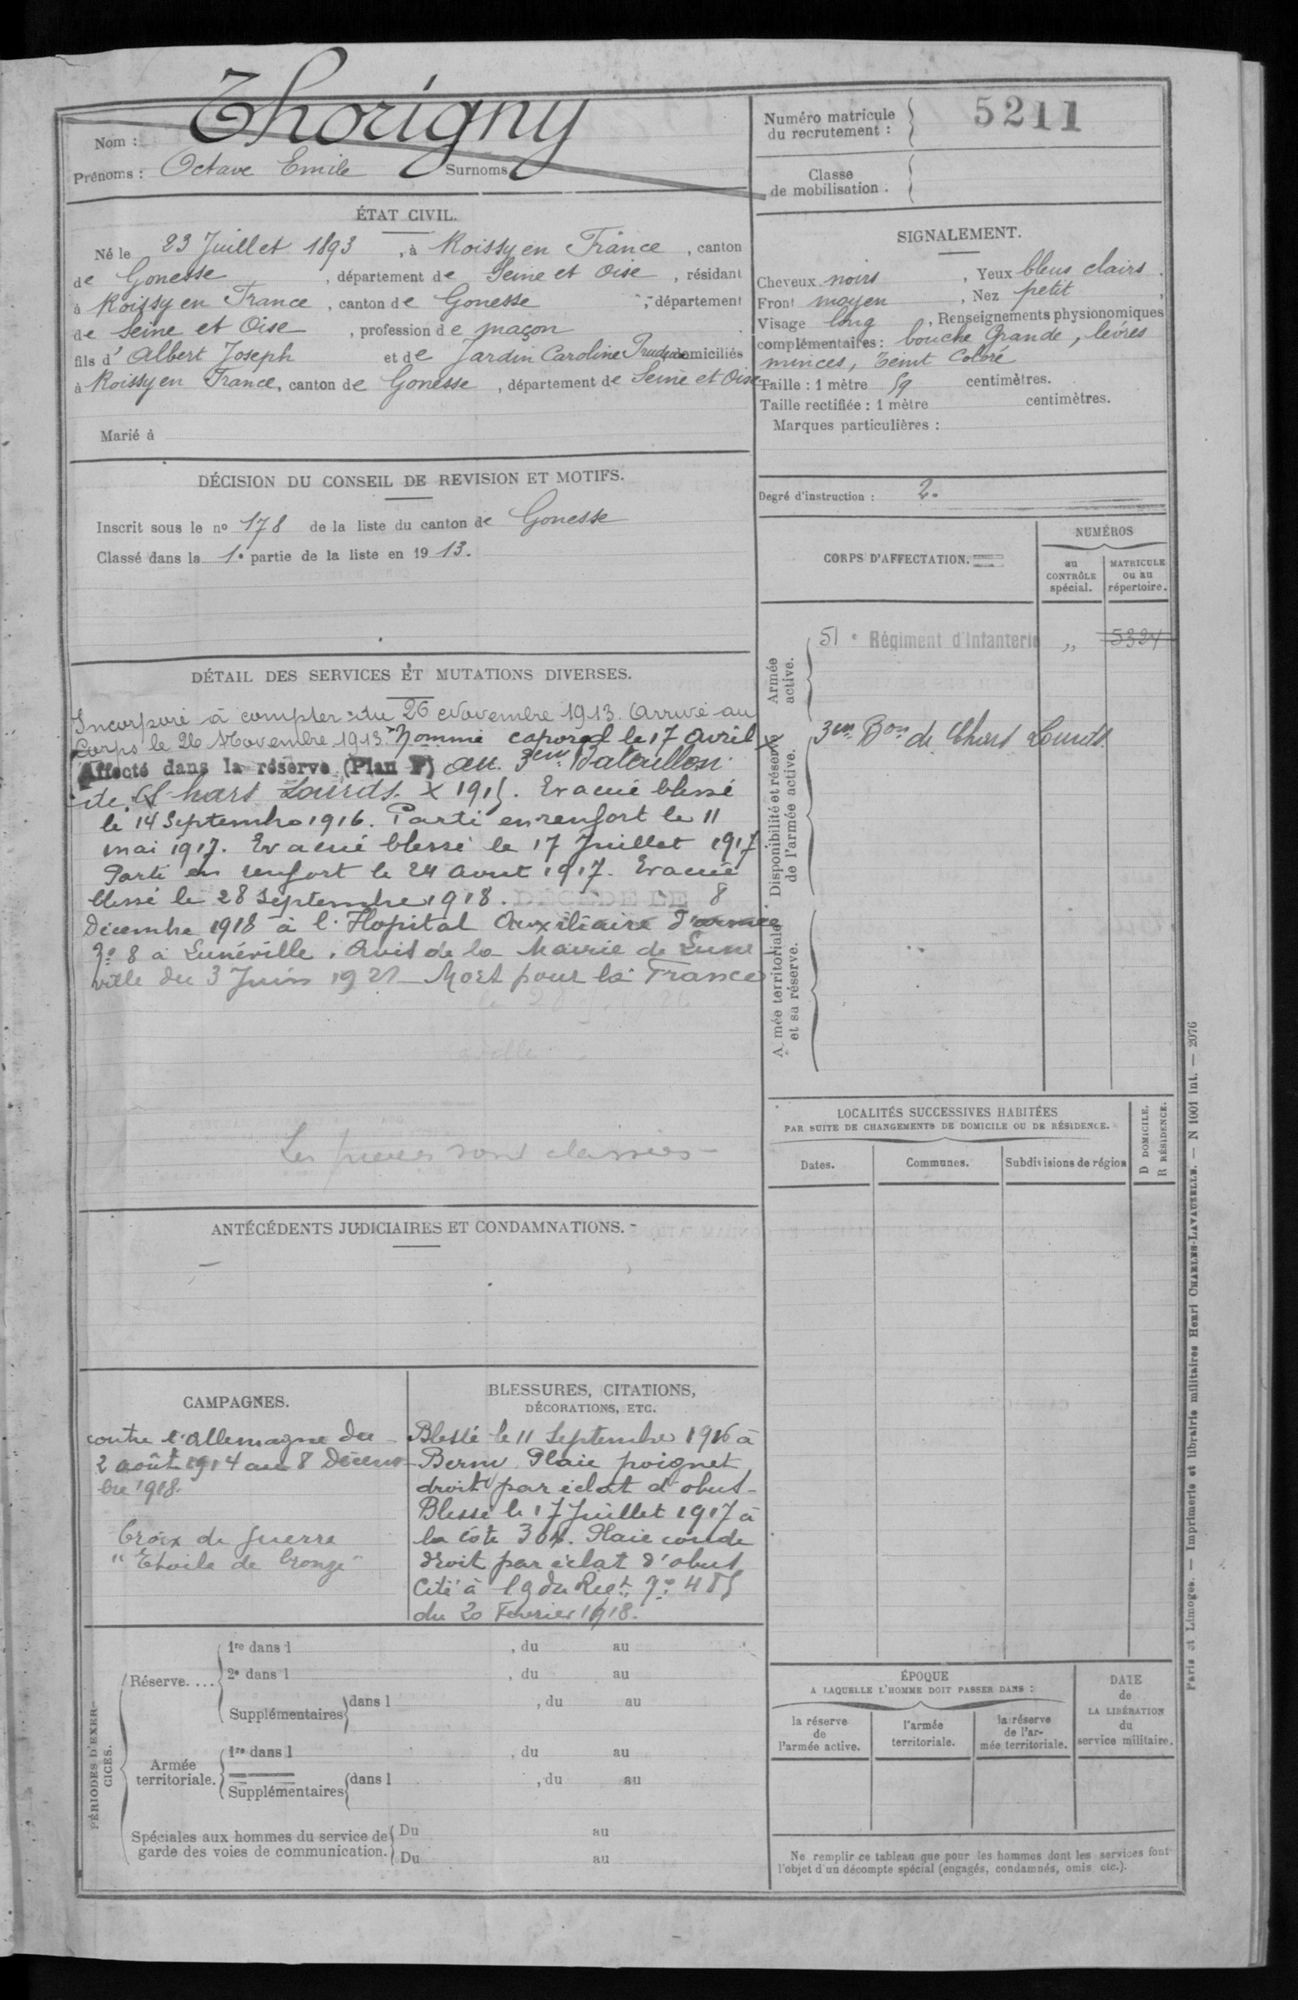 Nom : Thorigny
Prénoms : Octave Emile Surnoms
Numéro matricule du recrutement : 5211
Classe de mobilisation :
ÉTAT CIVIL.
Né le 23 Juillet 1893, à Roissy en France, canton
de Gonesse, département de Seine et Oise, résidant
à Roissy en France, canton de Gonesse, département
de Seine et Oise, profession de maçon
fils d'Albert Joseph et de Jardin Caroline domiciliés
à Roissy en France, canton de Gonesse, département de Seine et Oise
Marié à
SIGNALEMENT.
Cheveux noirs, Yeux bleus clairs.
Front moyen, Nez petit,
Visage long, Renseignements physionomiques
complémentaires : bouche Grande, lèvres
minces, teint Coloré
Taille : 1 mètre 59 centimètres.
Taille rectifiée : 1 mètre centimètres.
Marques particulières :
DÉCISION DU CONSEIL DE REVISION ET MOTIFS.
Inscrit sous le no 178 de la liste du canton de Gonesse
Classé dans la 1e partie de la liste en 1913.
Degré d'instruction : 2.
CORPS D'AFFECTATION.
NUMÉROS
au CONTRÔLE spécial.
MATRICULE ou au répertoire.
Armée active.
51e Régiment d'Infanterie „ 5324
Disponibilité et réserve de l'armée active.
3em Bon de Chars Lourds
Armée territoriale et sa réserve.
DÉTAIL DES SERVICES ET MUTATIONS DIVERSES.
Incorporé à compter du 26 Novembre 1913. Arrivé au
Corps le 26 Novembre 1913. Nommé caporal le 17 avril x
Affecté dans la réserve (Plan P) au 3em Bataillon
de Chars Lourds x 1915. Evacué blessé
le 14 Septembre 1916. Parti en renfort le 11
mai 1917. Evacué blessé le 17 Juillet 1917
Parti en renfort le 24 Aout 1917. Evacué
blessé le 28 septembre 1918. DÉCÉDÉ LE 8
Décembre 1918 à l'Hopital Auxiliaire d'armée
No 8 à Lunéville. Avis de la Mairie de Luné
ville du 3 Juin 1921 Mort pour la France
Les pieces sont classées
LOCALITÉS SUCCESSIVES HABITÉES
PAR SUITE DE CHANGEMENTS DE DOMICILE OU DE RÉSIDENCE.
Dates. Communes. Subdivisions de région
D DOMICILE.
R RÉSIDENCE.
ANTÉCÉDENTS JUDICIAIRES ET CONDAMNATIONS.
CAMPAGNES.
contre l'Allemagne du
2 août 1914 au 8 Décem
bre 1918.
Croix de guerre
"Etoile de bronze"
BLESSURES, CITATIONS,
DÉCORATIONS, ETC.
Blessé le 11 Septembre 1916 à
Berny Plaie poignet
droit par éclat d'obus
Blessé le 17 Juillet 1917 à
la côte 304. Plaie coude
droit par éclat d'obus
Cité à l'O du Régt No 485
du 20 Fevrier 1918.
PÉRIODES D'EXERCICES.
Réserve....
1re dans l , du au
2e dans l , du au
Supplémentaires dans l , du au
Armée territoriale.
1re dans l , du au
Supplémentaires dans l , du au
Spéciales aux hommes du service de garde des voies de communication.
Du au
Du au
ÉPOQUE
A LAQUELLE L'HOMME DOIT PASSER DANS :
la réserve de l'armée active.
l'armée territoriale.
la réserve de l'armée territoriale.
DATE de LA LIBÉRATION du service militaire.
Ne remplir ce tableau que pour les hommes dont les services font
l'objet d'un décompte spécial (engagés, condamnés, omis etc.).
Paris et Limoges. — Imprimerie et librairie militaires Henri CHARLES-LAVAUZELLE. — N 1001 int. — 2076